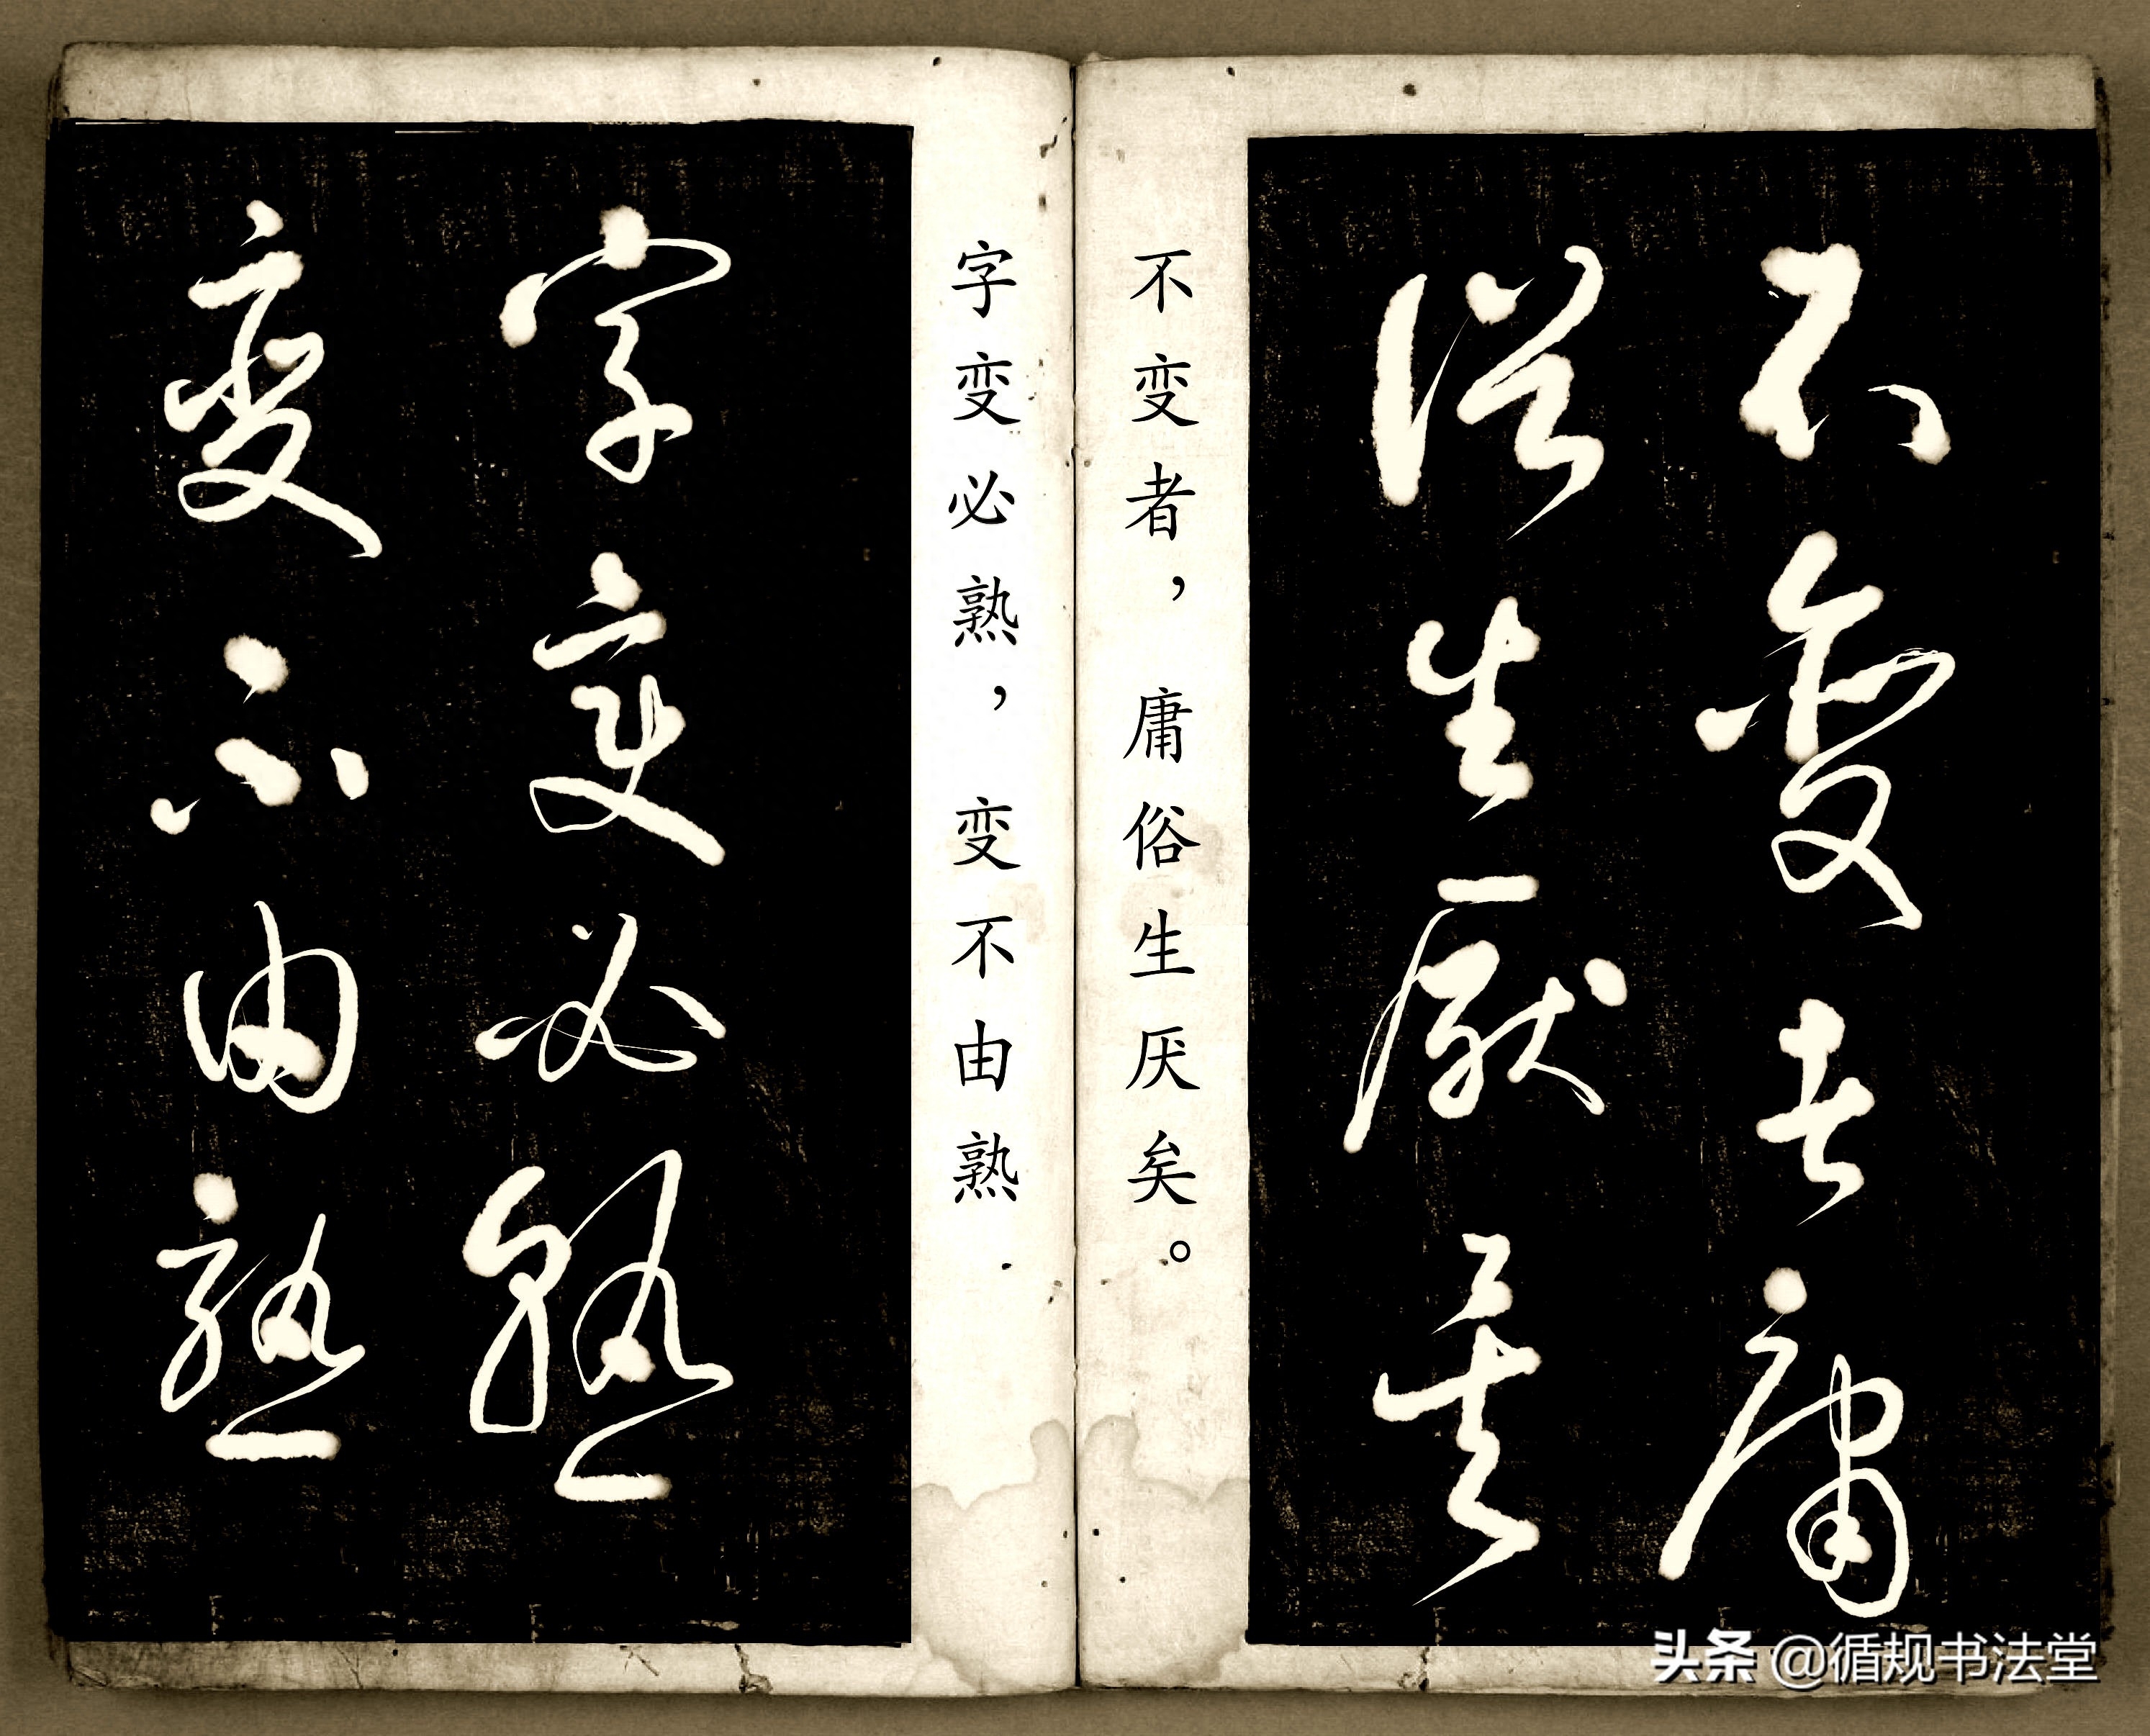 不變者庸
俗生厭矣
不变者，庸俗生厌矣。
字变必熟，变不由熟
字變必熟
變不由熟
头条 @循规书法堂